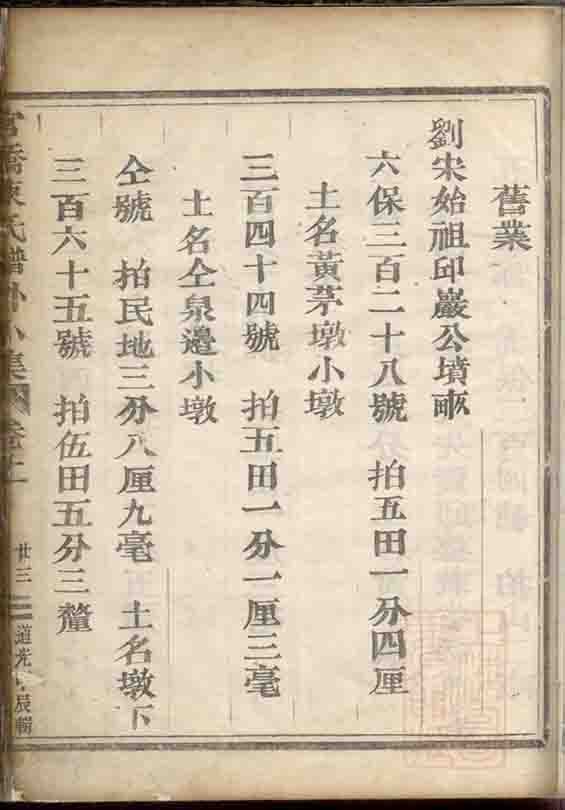 舊業
劉宋始祖邱巖公墳畝
六保三百二十八號 拍五田一分四厘
土名黃茅墩小墩
三百四十四號 拍五田一分一厘三毫
土名仝泉邊小墩
仝號 拍民地三分八厘九毫 土名墩下
三百六十五號 拍伍田五分三釐
氏譜 小集 卷上 廿三 道光 辰輯